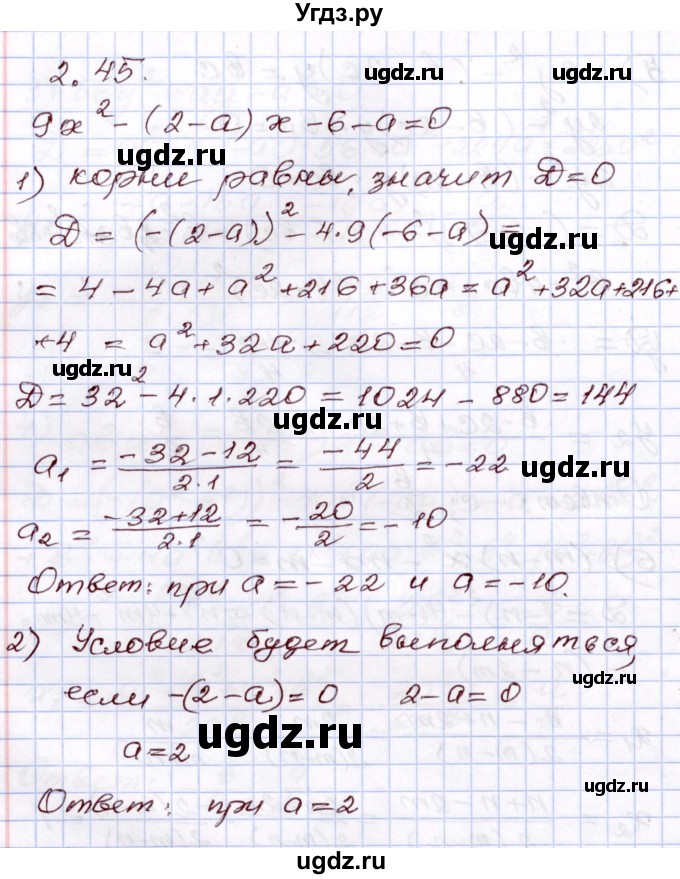 Угдз.ру
2.45.
ugdz.ru ugdz.ru
9x² - (2-a)x - 6 - a = 0
ugdz.ru
1) корни равны, значит D=0
D = (-(2-a))² - 4·9(-6-a) =
ugdz.ru ugdz.ru
= 4 - 4a + a² + 216 + 36a = a² + 32a + 216 +
+4 = a² + 32a + 220 = 0
ugdz.ru ugdz.ru
D = 32² - 4·1·220 = 1024 - 880 = 144
a₁ = (-32-12)/(2·1) = (-44)/2 = -22
ugdz.ru ugdz.ru
a₂ = (-32+12)/(2·1) = -20/2 = -10
Ответ: при a = -22 и a = -10.
ugdz.ru
2) Условие будет выполняться,
ugdz.ru
если -(2-a)=0 2-a=0
ugdz.ru
a=2
ugdz.ru
Ответ: при a=2
ugdz.ru ugdz.ru
ugdz.ru